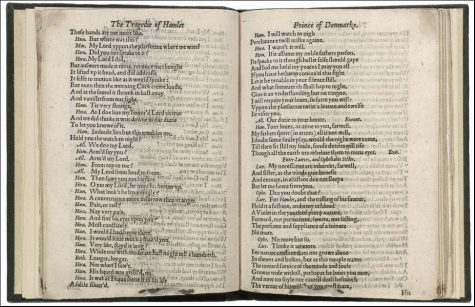 The Tragedie of Hamlet
These hands are not more like.
Ham. But where was this?
Mar. My Lord vppon the platforme where we watcht
Ham. Did you not speake to it?
Hora. My Lord I did,
But answere made it none, yet once me thought
It lifted vp it head, and did addresse
It selfe to motion like as it would speake:
But euen then the morning Cock crew loude,
And at the sound it shrunk in hast away
And vanisht from our sight.
Ham. Tis very strange.
Hora. As I doe liue my honor'd Lord tis true
And we did thinke it writ downe in our dutie
To let you knowe of it.
Ham. Indeede Sirs but this troubles me,
Hold you the watch to night?
All. We doe my Lord.
Ham. Arm'd say you?
All. Arm'd my Lord.
Ham. From top to toe?
All. My Lord from head to foote.
Ham. Then sawe you not his face.
Hora. O yes my Lord, he wore his beauer vp.
Ham. What look't he frowningly?
Hora. A countenance more in sorrow then in anger.
Ham. Pale, or red?
Hora. Nay very pale.
Ham. And fixt his eyes vpon you?
Hora. Most constantly.
Ham. I would I had beene there.
Hora. It would haue much a maz'd you.
Ham. Very like, stayd it long?
Hora. While one with moderate hast might tell a hundreth.
Both. Longer, longer.
Hora. Not when I saw't.
Ham. His beard was grissl'd, no.
Hora. It was as I haue seene it in his life
A sable siluer'd.
Prince of Denmarke.
Ham. I will watch to nigh
Perchaunce twill walke againe.
Hora. I warn't it will.
Ham. If it assume my noble fathers person,
Ile speake to it though hell it selfe should gape
And bid me hold my peace; I pray you all
If you haue hetherto conceald this sight
Let it be tenable in your silence still,
And what someuer els shall hap to night,
Giue it an vnderstanding but no tongue,
I will requite your loues, so farre you well:
Vppon the platforme twixt a leauen and twelfe
Ile visite you.
All. Our dutie to your honor. Exeunt.
Ham. Your loues, as mine to you, farwell.
My fathers spirit (in armes) all is not well,
I doubt some foule play, would the night were come,
Till then sit still my soule, fonde deedes will rise
Though all the earth ore-whelme them to mens eyes. Exit.
Enter Laertes, and Ophelia his Sister.
Laer. My necessaries are inbarckt, farwell,
And sister, as the winds giue benefit
And conuay, in assistant doe not sleepe
But let me heere from you.
Ophe. Doe you doubt that?
Laer. For Hamlet, and the trifling of his fauour,
Hold it a fashion, and a toy in blood
A Violet in the youth of primy nature,
Forward, not permanent, sweete, not lasting,
The perfume and suppliance of a minute
No more.
Ophe. No more but so.
Laer. Thinke it no more.
For nature cressant does not grow alone
In thewes and bulkes, but as this temple waxes
The inward seruice of the minde and soule
Growes wide withall, perhapes he loues you now,
And now no soyle nor cautell doth besmirch
The vertue of his will, but you must feare,
His